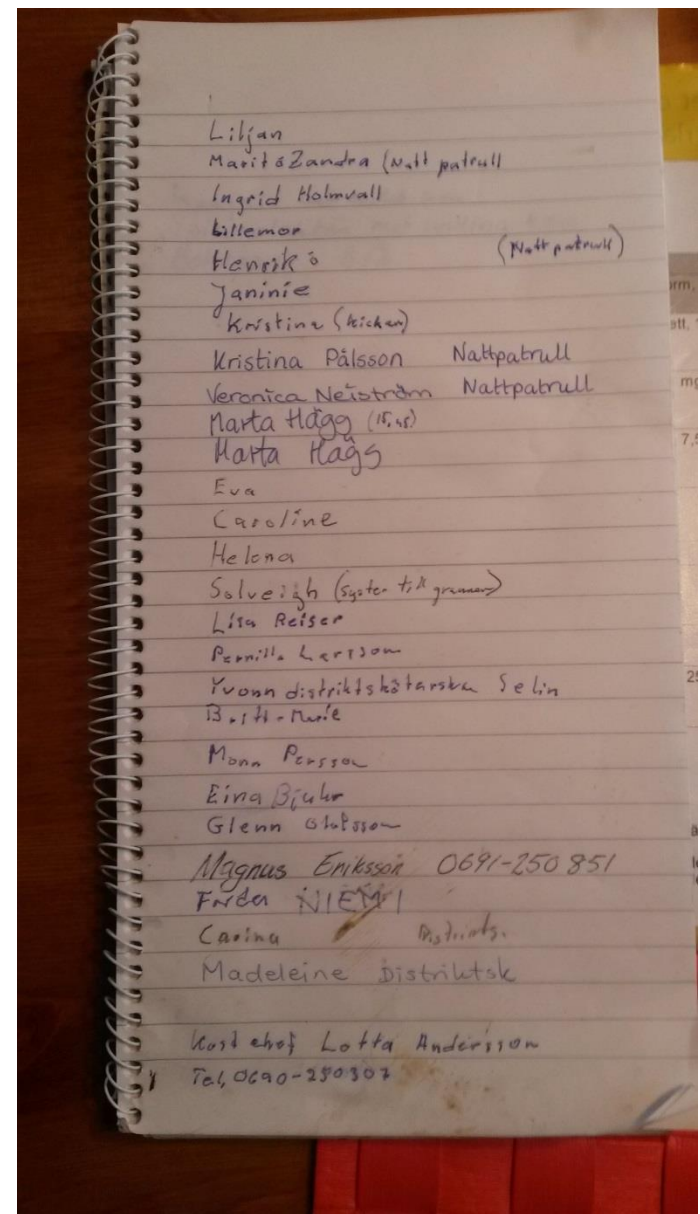 Liljan
Marit & Zandra (Natt patrull
Ingrid Holmvall
Lillemor
Henrik & (Natt patrull)
Janinie
Kristina (kickan)
Kristina Pålsson Nattpatrull
Veronica Neiström Nattpatrull
Marta Hägg (15,45)
Marta Hägg
Eva
Caroline
Helena
Solveigh (syster till grannen)
Lisa Reiser
Pernilla Larsson
Yvonn distriktskötarska Selin
Britt-Marie
Mona Persson
Eina Bjuhr
Glenn Olofsson
Magnus Eriksson 0691-250 851
NIEMI
Carina
Madeleine Distriktsk
Kost chef Lotta Andersson
Tel, 0690-250307
7,5
25